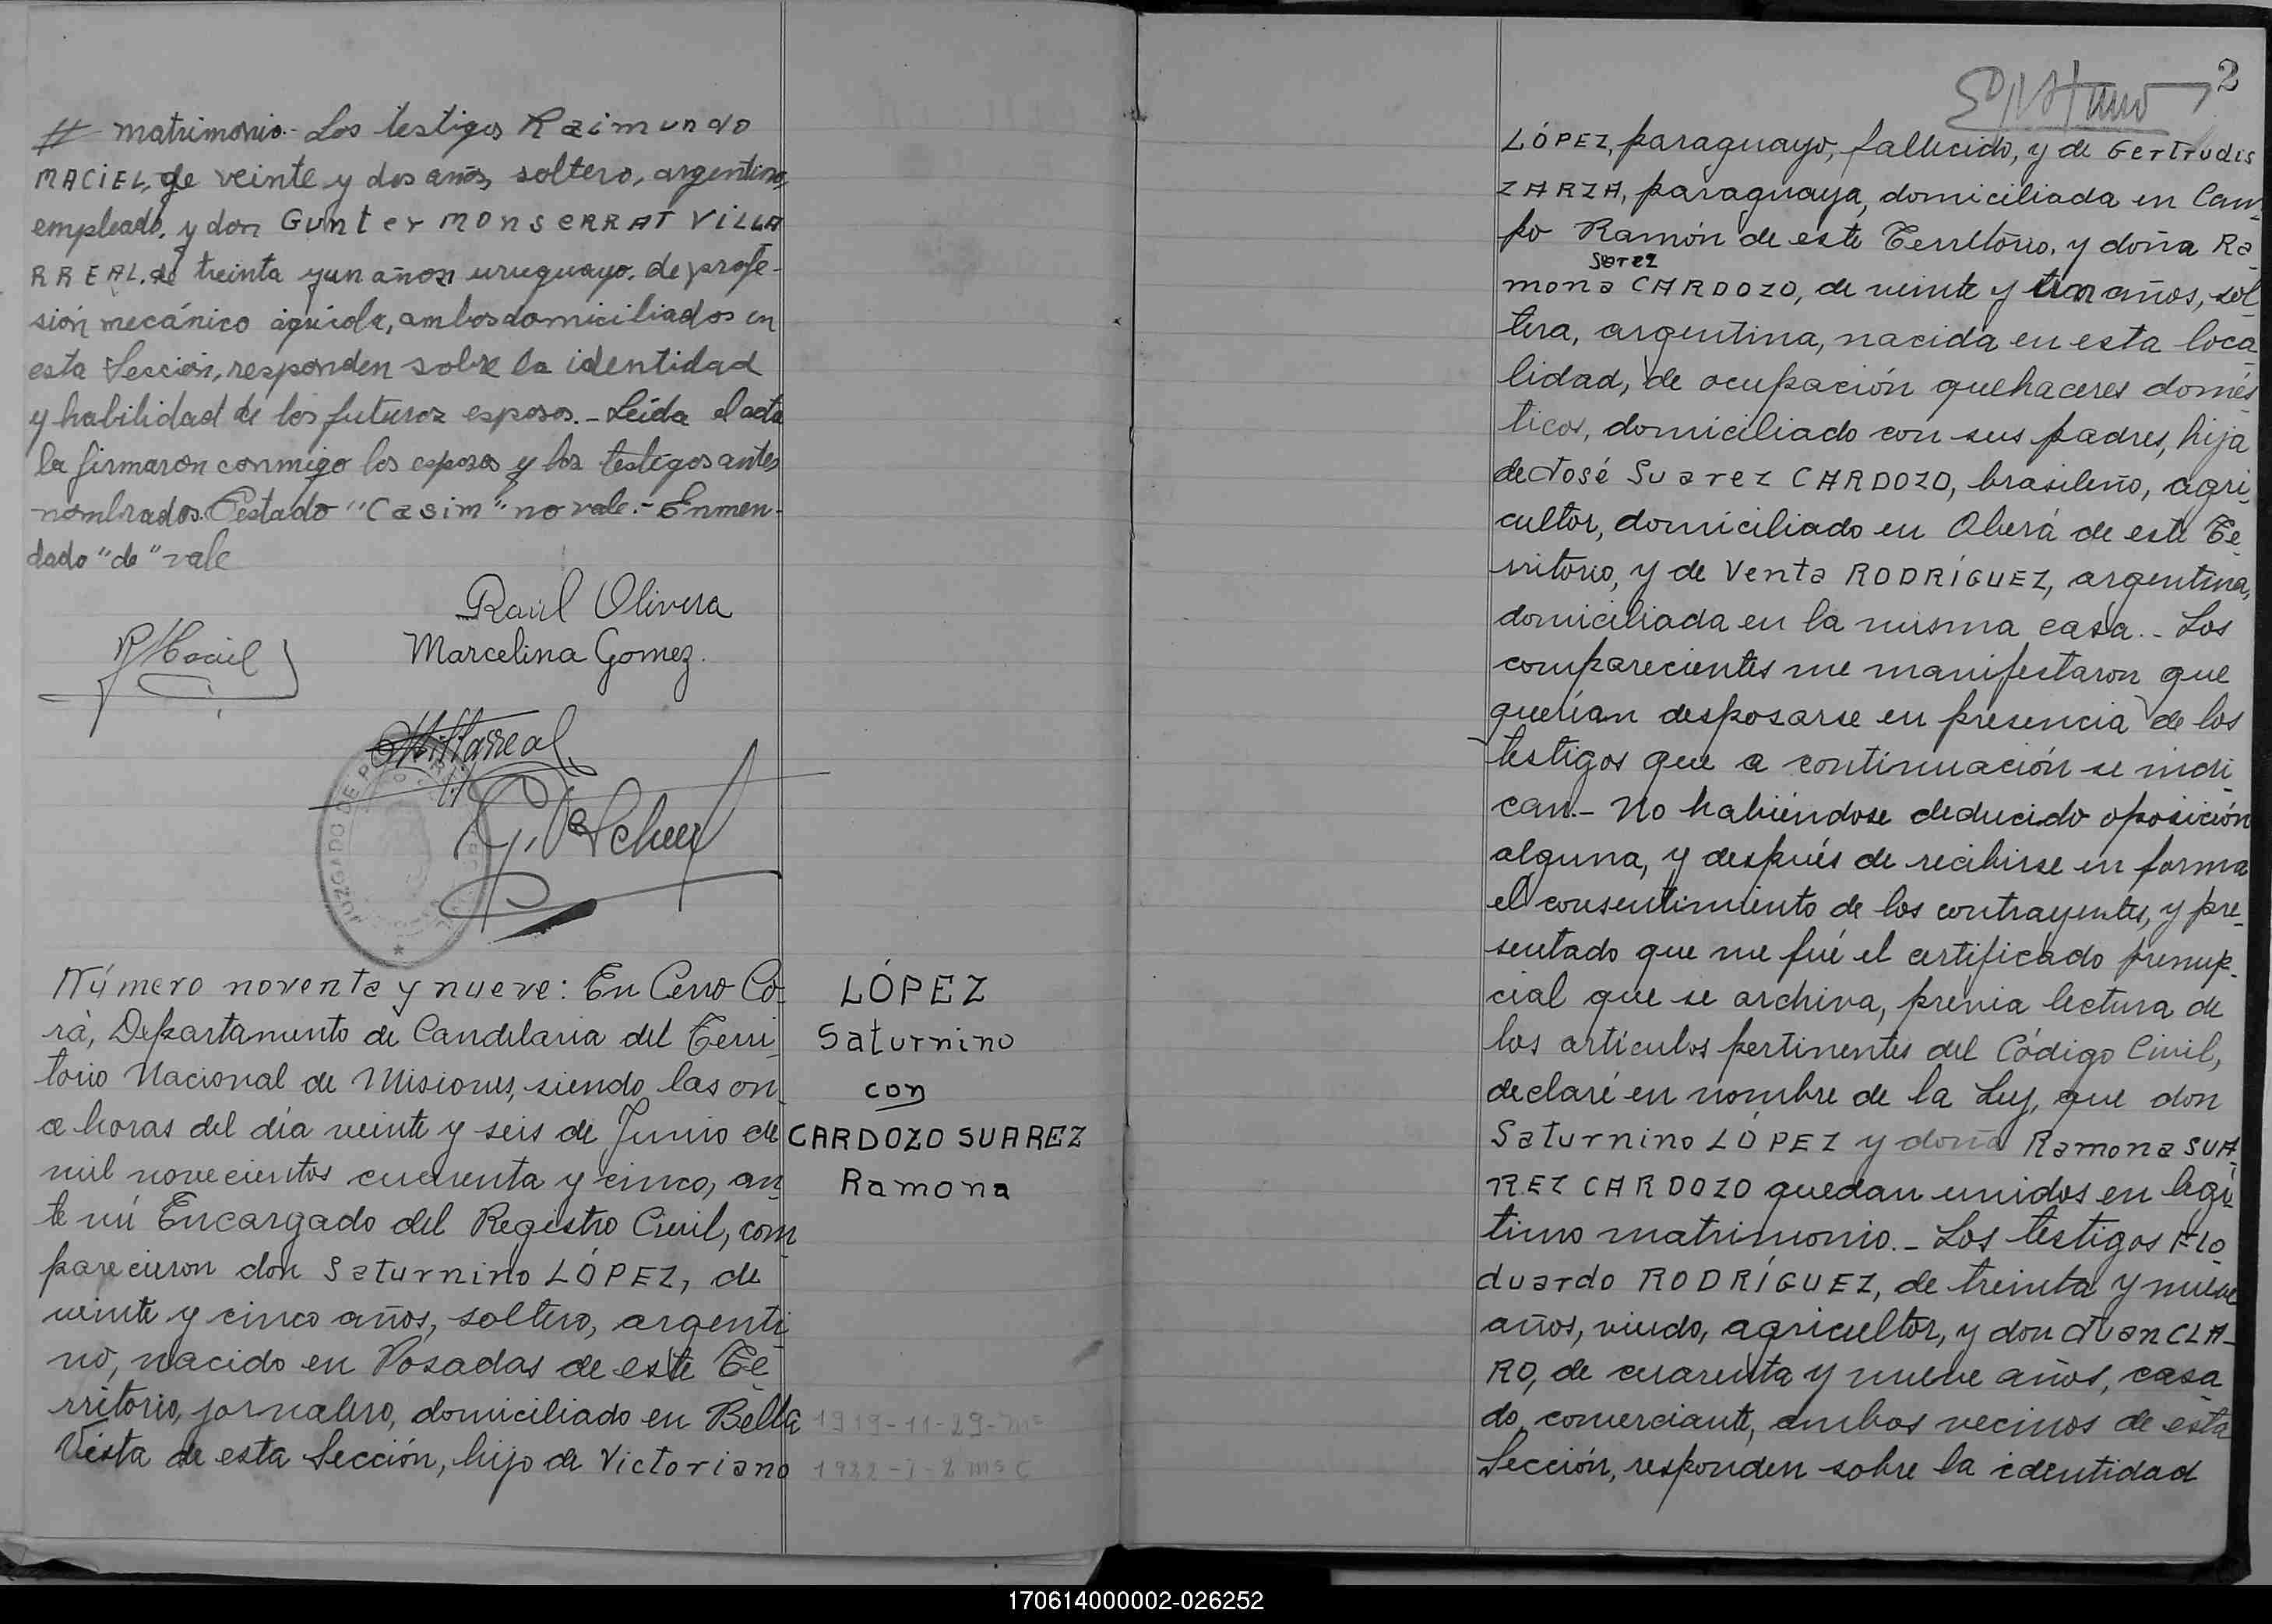 # matrimonio.- Los testigos Raimundo
MACIEL, de veinte y dos años, soltero, argentino,
empleado, y don Gunter MONSERRAT VILLA
RREAL, de treinta y un años, uruguayo, de profe-
sión mecánico agrícola, ambos domiciliados en
esta Sección, responden sobre la identidad
y habilidad de los futuros esposos.- Leída el acta
la firmaron conmigo los esposos y los testigos antes
nombrados. Testado "Casim" no vale.- Enmen-
dado "de" vale
Raúl Olivera
Marcelina Gomez.
R Maciel
Villarreal
JUZGADO DE
Número noventa y nueve: En Cerro Co-
rá, Departamento de Candelaria del Terri-
torio Nacional de Misiones, siendo las on-
ce horas del día veinte y seis de Junio de
mil novecientos cuarenta y cinco, an-
te mí Encargado del Registro Civil, com-
parecieron don Saturnino LÓPEZ, de
veinte y cinco años, soltero, argenti-
no, nacido en Posadas de este Te-
rritorio, jornalero, domiciliado en Bella
Vista de esta Sección, hijo de Victoriano
LÓPEZ
Saturnino
con
CARDOZO SUAREZ
Ramona
1919-11-29-
2
LÓPEZ, paraguayo, fallecido, y de Gertrudis
ZARZA, paraguaya, domiciliada en Cam-
po Ramón de este Territorio, y doña Ra-
Suarez
mona CARDOZO, de veinte y un años, sol-
tera, argentina, nacida en esta loca-
lidad, de ocupación quehaceres domés-
ticos, domiciliado con sus padres, hija
de José Suarez CARDOZO, brasileño, agri-
cultor, domiciliado en Oberá de este Te-
rritorio, y de Venta RODRÍGUEZ, argentina,
domiciliada en la misma casa.- Los
comparecientes me manifestaron que
querían desposarse en presencia de los
testigos que a continuación se indi-
can.- No habiéndose deducido oposición
alguna, y después de recibirse en forma
el consentimiento de los contrayentes, y pre-
sentado que me fué el certificado prenup-
cial que se archiva, previa lectura de
los artículos pertinentes del Código Civil,
declaré en nombre de la Ley, que don
Saturnino LÓPEZ y doña Ramona SUA-
REZ CARDOZO quedan unidos en legí-
timo matrimonio.- Los testigos Flo
duardo RODRÍGUEZ, de treinta y nueve
años, viudo, agricultor, y don Juan CLA-
RO, de cuarenta y nueve años, casa-
do, comerciante, ambos vecinos de esta
Sección, responden sobre la identidad
170614000002-026252